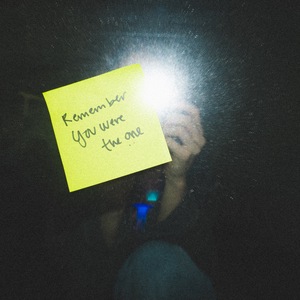 Remember
You were
the one